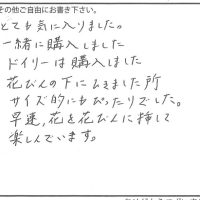 その他ご自由にお書き下さい。
とても気に入りました。
一緒に購入しました
ドイリーは購入しました
花びんの下にしきました所
サイズ的にもぴったりでした。
早速、花を花びんに挿して
楽しんでいます。